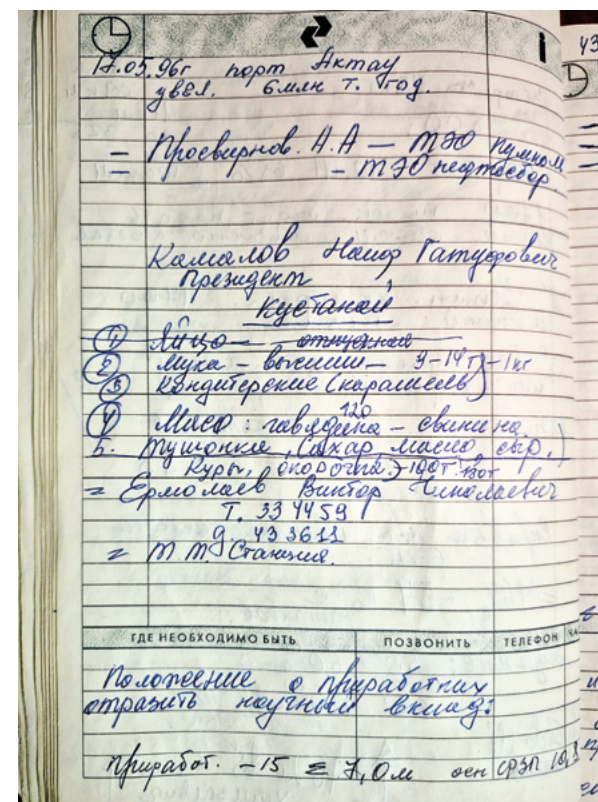 17.05.96г порт Актау
увел. 6 млн т. год.
— Просвирнов. А.А — ТЭО
— — ТЭО нефтесбор
Камалов Гатуфович
Президент
Кустанай
① Яйцо —
② Мука — высший — 9-14т — 1 кг
③ Кондитерские (карамель)
④ Мясо: говядина — свинина
120
5. Тушонка, Сахар, масло, сыр.
Куры, окорочка 100т. 130т
= Ермолаев Виктор Николаевич
Т. 33 44 59
д. 43 36 11
= М.М. Станция.
ГДЕ НЕОБХОДИМО БЫТЬ ПОЗВОНИТЬ ТЕЛЕФОН
Положение о приработках
отразить научный вклад:
приработ. -15 = 7,0м осн СРЗП 10,
43